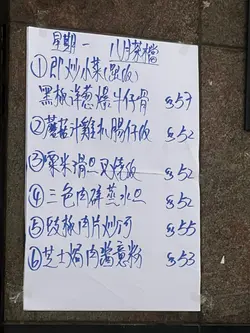 星期一 八月茶檔
①即炒小菜(跟飯)
黑椒洋葱爆牛仔骨 $57
②蘑菇汁雞扒腸仔飯 $52
③粟米滑旦叉燒飯 $52
④三色肉碎蒸水旦 $52
⑤豉椒肉片炒河 $55
⑥芝士焗肉醬意粉 $53